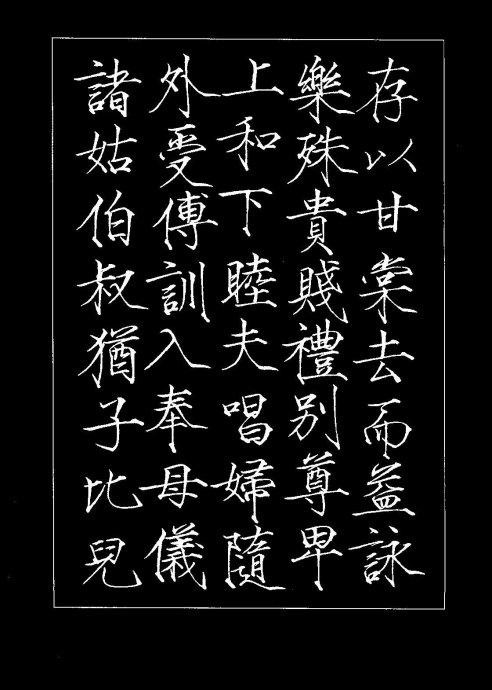 存以甘棠去而益詠
樂殊貴賤禮別尊卑
上和下睦夫唱婦隨
外受傅訓入奉母儀
諸姑伯叔猶子比兒